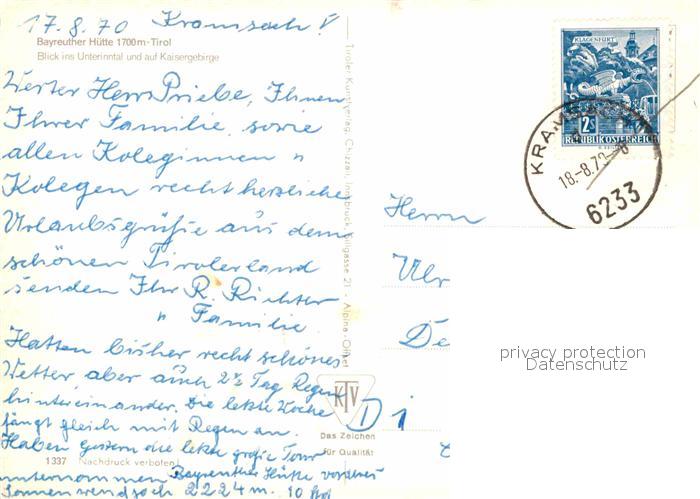 17.8.70 Kramsach
Bayreuther Hütte 1700m-Tirol
Blick ins Unterinntal und auf Kaisergebirge
Werter Herr Priebe, Ihnen
Ihrer Familie, sowie
allen Koleginnen u
Kolegen recht herzliche
Urlaubsgrüße aus dem
schönen Tirolerland
senden Ihr R. Richter
" Familie
Hatten bisher recht schönes
Wetter, aber auch 2½ Tag Regen
hintereinander. Die letzte Woche
fängt gleich mit Regen an.
Haben gestern die letzte große Tour
unternommen Bayreuther Hütte
Sonnenwendjoch 2224m. 10
1337 Nachdruck verboten!
Tiroler Kunstverlag Chizzali, Innsbruck, 21 - Alpina-Offset
KTV
Das Zeichen
für Qualität
KLAGENFURT
2S
REPUBLIK ÖSTERREICH
18.-8.70-8
6233
Herrn
De
D
privacy protection
Datenschutz